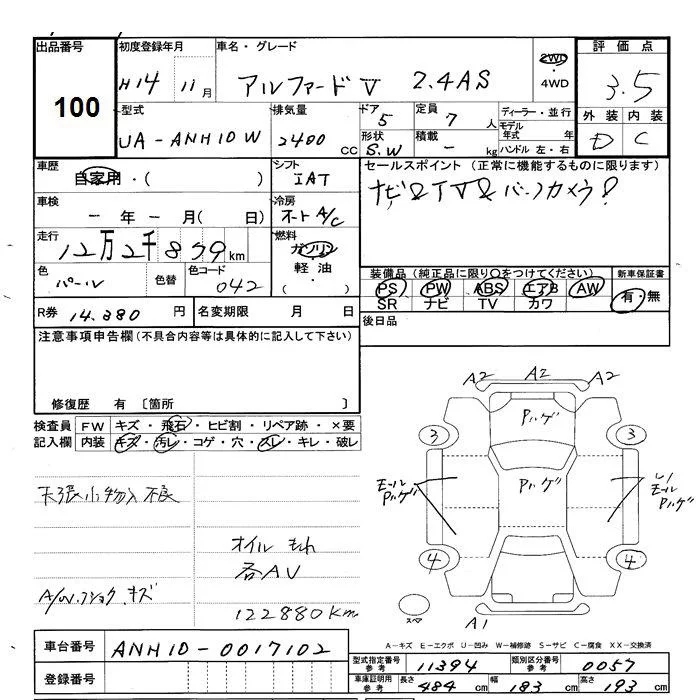 出品番号 初度登録年月 車名・グレード 2WD・4WD 評価点
100 H14 11月 アルファードV 2.4AS 3.5
型式 排気量 ドア 定員 ディーラー・並行 外装 内装
UA-ANH10W 2400cc 5 7人 モデル年式 年 D C
形状 S.W 積載 - kg ハンドル 左・右
車歴 自家用・( ) シフト IAT セールスポイント (正常に機能するものに限ります)
ナビ&TV&バックカメラ!
車検 -年-月( 日) 冷房 オートA/C
走行 12万2千879km 燃料 ガソリン・軽油・( )
色 パール 色替 色コード 042
装備品 (純正品に限り○をつけてください) 新車保証書
PS PW ABS エアB AW 有・無
SR ナビ TV カワ
R券 14.380円 名変期限 月 日 後日品
注意事項申告欄 (不具合内容等は具体的に記入して下さい)
修復歴 有 〔箇所 〕
検査員 FW キズ・飛石・ヒビ割・リペア跡・×要
記入欄 内装 キズ・汚レ・コゲ・穴・スレ・キレ・破レ
A2 A2 A2
Pハゲ
3 3
Pハゲ
モールPハゲ
モールPハゲ
4 4
スペア
A1
オイルもれ
各AV
キズ
122880Km
A-キズ E-エクボ U-凹み W-補修跡 S-サビ C-腐食 XX-交換済
車台番号 ANH10-0017102
登録番号
型式指定番号 参考 11394 類別区分番号 参考 0057
車庫証明用 参考 長さ 484cm 幅 183cm 高さ 193cm